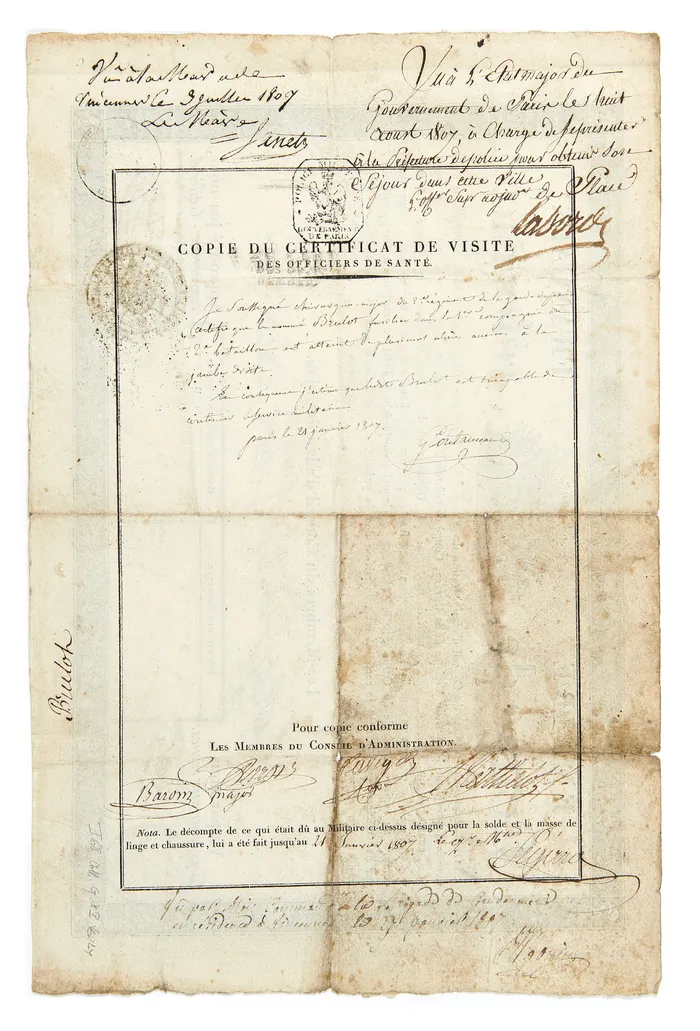 Vu à la Mairie de
Vincennes le 3 juillet 1807
Le Maire
Vu à l'Etat major du
Gouvernement de Paris le huit
Aoust 1807, à Charge de se présenter
à la Préfecture de police pour obtenir son
Séjour dans cette Ville
de Place
Laborde
POLICE MILITAIRE
GOUVERNEMENT
DE PARIS
COPIE DU CERTIFICAT DE VISITE
DES OFFICIERS DE SANTÉ.
Je Soussigné chirurgien major du 2e régiment de la garde de paris
certifie que le nommé Brulot fusilier dans la 1ere compagnie du
2e bataillon est atteint de plusieurs ulcères anciens à la
jambe droite.
En conséquence j'estime que ledit Brulot est incapable de
continuer le service militaire
paris le 21 janvier 1807.
Brulot
Pour copie conforme
LES MEMBRES DU CONSEIL D'ADMINISTRATION.
Baron
major
Nota. Le décompte de ce qui était dû au Militaire ci-dessus désigné pour la solde et la masse de
linge et chaussure, lui a été fait jusqu'au 21 Janvier 1807
Vu par la Brigade de Gendarmerie
en résidence à Vincennes le Janvier 1807